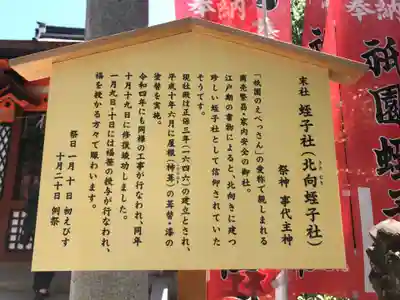 末社 蛭子社(北向蛭子社)
きた むき
祭神 事代主神
「祇園のえべっさん」の愛称で親しまれる
商売繁昌・家内安全の御社。
江戸期の書物によると、北向きに建つ
珍しい蛭子社として信仰されていた
そうです。
現社殿は正保三年(一六四六)の建立とされ、
平成十年六月に屋根(神葺)の葺替・漆の
塗替を実施。
令和四年にも同様の工事が行なわれ、同年
十月十九日に修復竣功しました。
一月九日・十日には福笹の授与が行なわれ、
福を授かる方々で賑わいます。
祭日 一月十日 初えびす
十月二十日 例祭
奉納
奉納
祇園蛭子